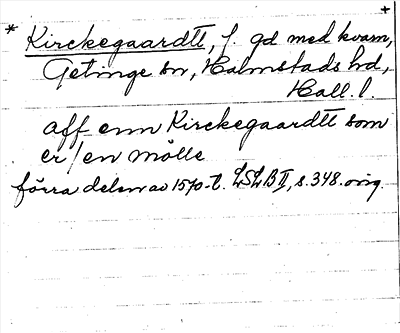 +
* Kirckegaardtt, f. gd med kvarn,
Getinge sn, Halmstads hd,
Hall. l.
aff enn Kirckegaardtt som
er / en mölle
förra delen av 1570-t. LSLB II, s. 348. orig.